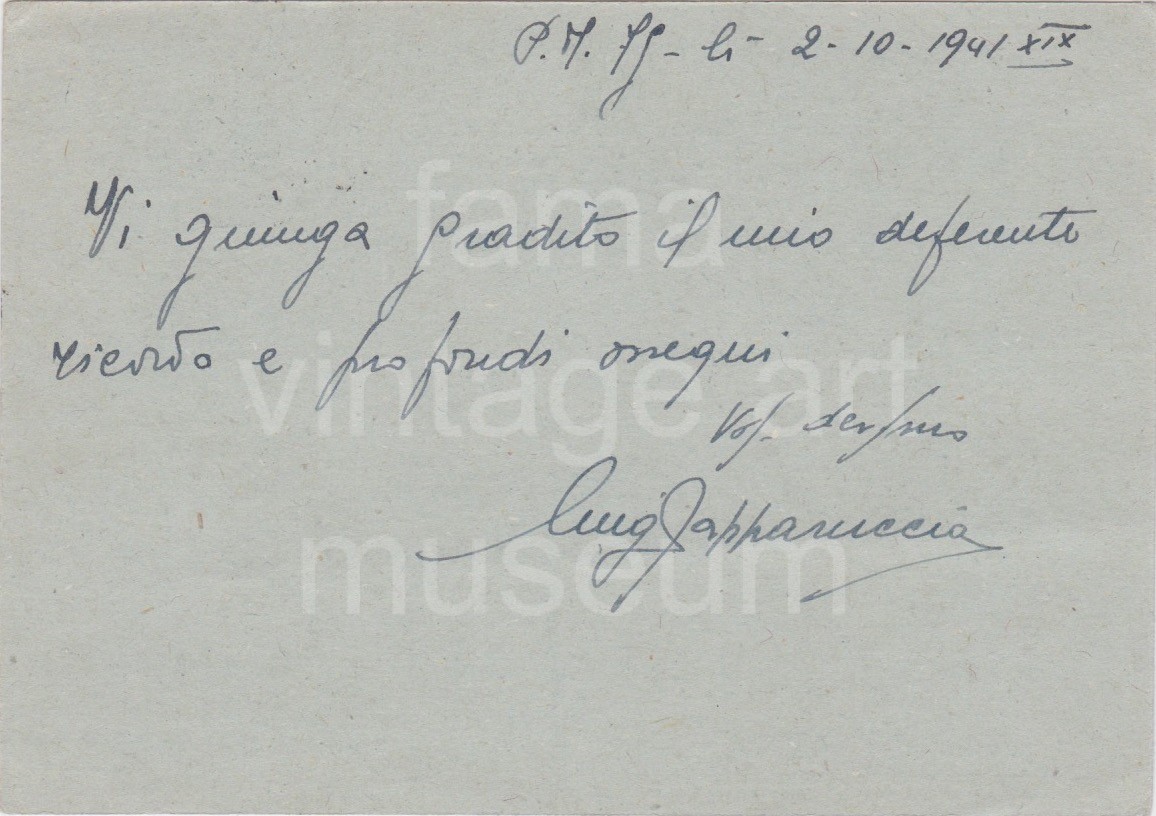 P.M. 75 - lì - 2 - 10 - 1941 XIX
Vi giunga gradito il mio deferente
ricordo e profondi ossequi
dev/mo
Luigi
fama
vintage art
museum